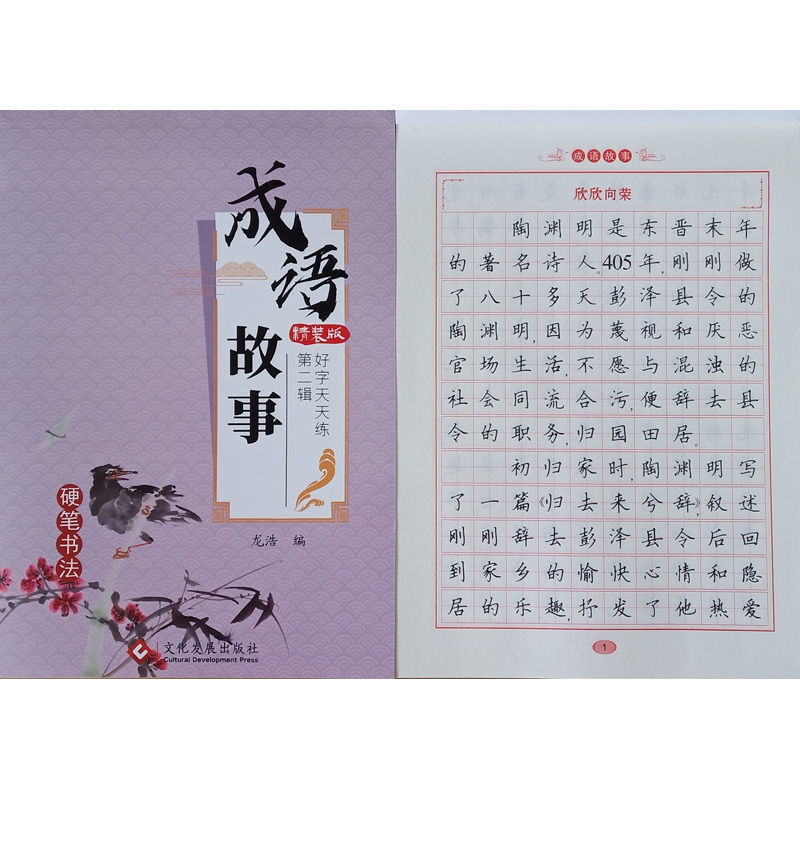 成语
故事
精装版
好字天天练
第二辑
硬笔书法
龙浩 编
文化发展出版社
Cultural Development Press
成语故事
欣欣向荣
陶渊明是东晋末年
的著名诗人。405年,刚刚做
了八十多天彭泽县令的
陶渊明,因为蔑视和厌恶
官场生活,不愿与混浊的
社会同流合污,便辞去县
令的职务,归园田居。
初归家时,陶渊明写
了一篇《归去来兮辞》,叙述
刚刚辞去彭泽县令后回
到家乡的愉快心情和隐
居的乐趣,抒发了他热爱
1